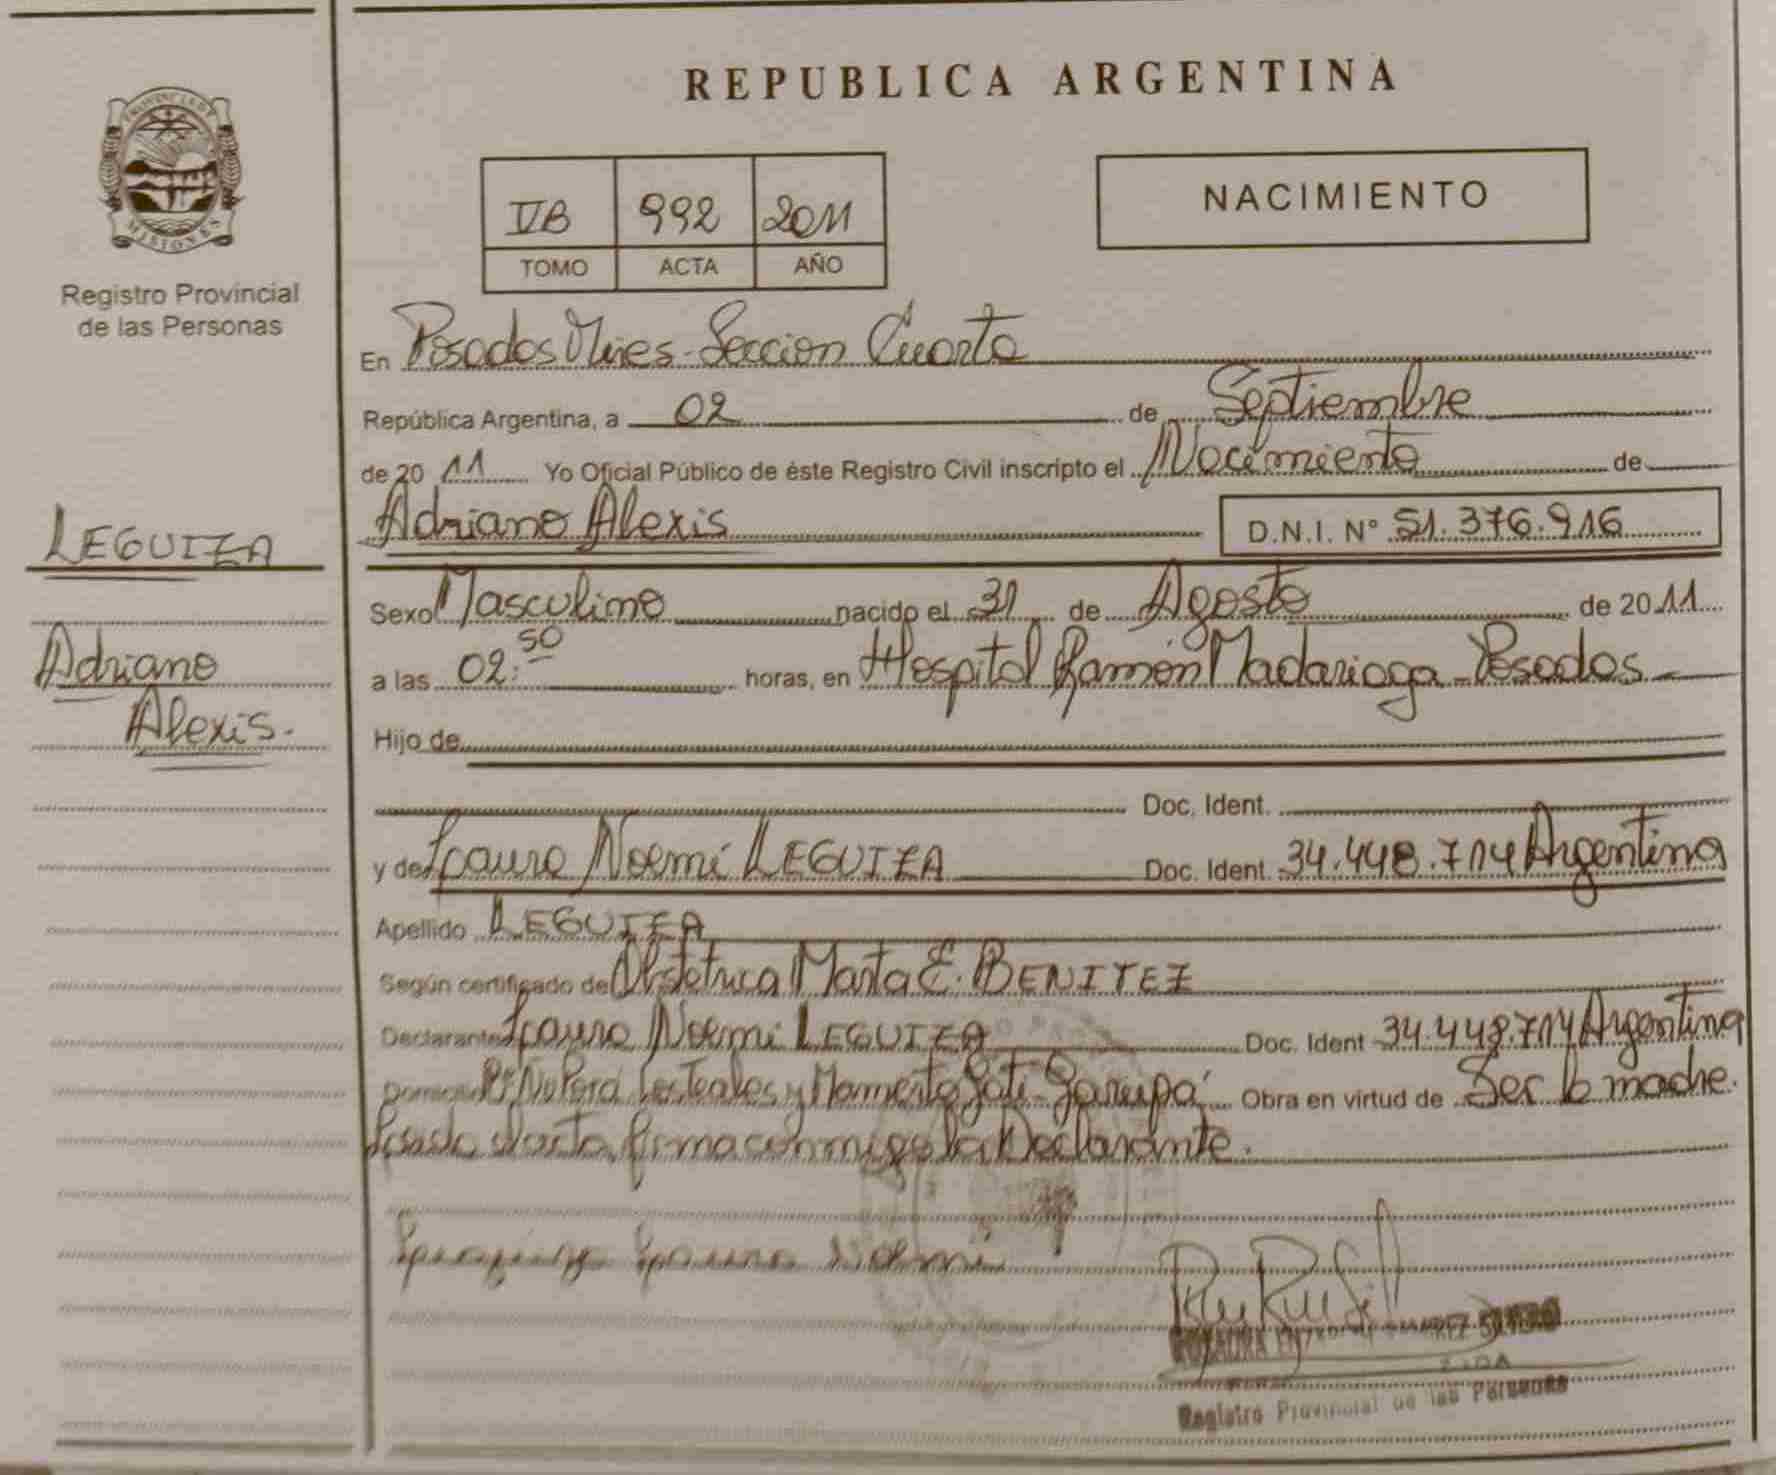 PROVINCIA DE
MISIONES
Registro Provincial
de las Personas
LEGUIZA
Adriano
Alexis.
REPUBLICA ARGENTINA
IVB 992 2011
TOMO ACTA AÑO
NACIMIENTO
En Posadas Mnes. Seccion Cuarta
República Argentina, a 02 de Septiembre
de 2011 Yo Oficial Público de éste Registro Civil inscripto el Nacimiento de
Adriano Alexis D.N.I. N° 51.376.916
Sexo Masculino nacido el 31 de Agosto de 2011
a las 02:50 horas, en Hospital Ramón Madariaga - Posadas
Hijo de
Doc. Ident.
y de Laura Noemí LEGUIZA Doc. Ident. 34.448.714 Argentina
Apellido LEGUIZA
Según certificado de Obstetrica Marta E. BENITEZ
Declarante Laura Noemi LEGUIZA Doc. Ident 34.448.714 Argentina
Domicilio Los Teales y Garupá Obra en virtud de Ser la madre.
acta, firma conmigo la Declarante.
Laura Noemi
Registro Provincial de las Personas